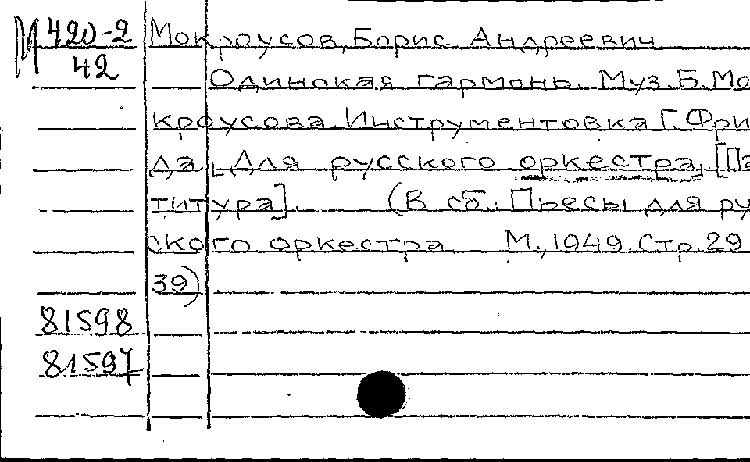 М 420-2 Мокроусов, Борис Андреевич
42 Одинокая гармонь. Муз. Б. Мо
кроусова. Инструментовка Г. Фри
да. Для русского оркестра, [Па
титура]. (В сб.: Пьесы для ру
ского оркестра. М., 1949. Стр. 29
39)
81598
81597